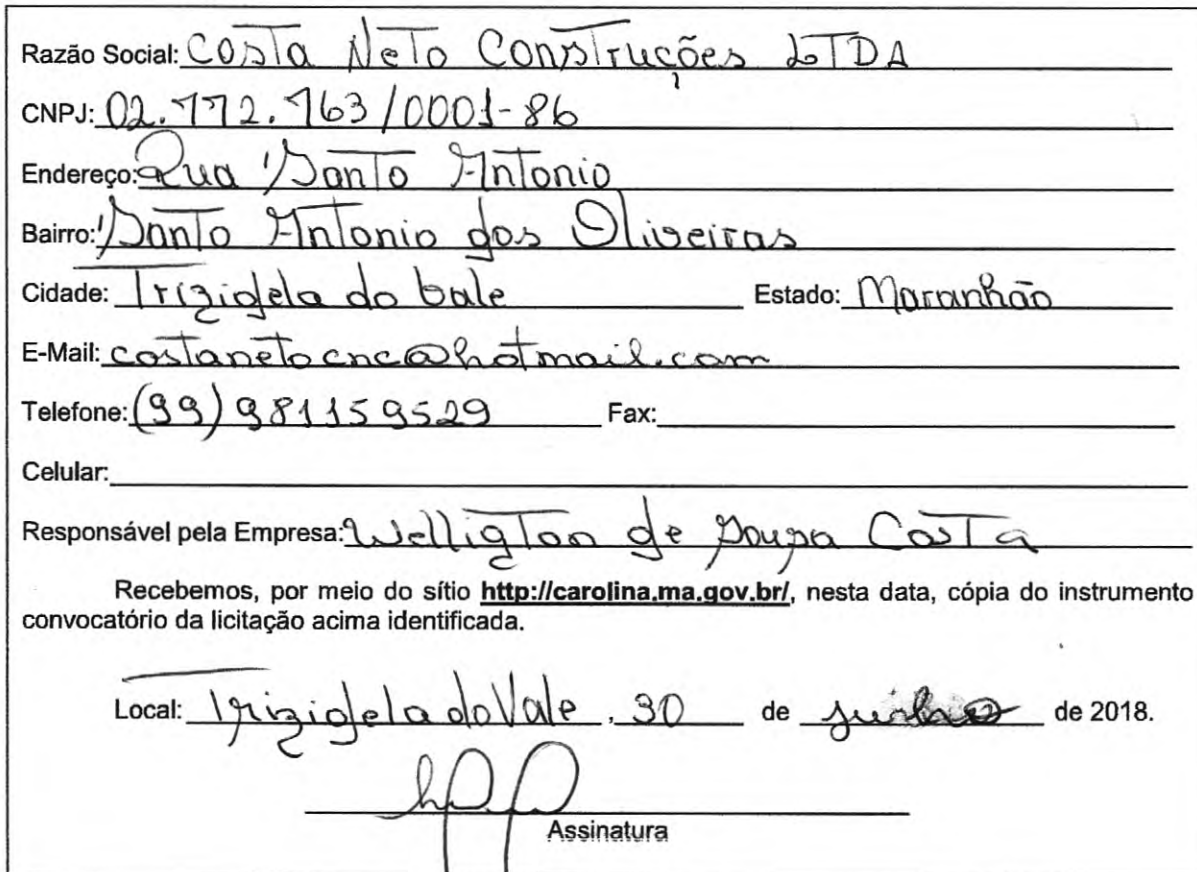 Razão Social: Costa Neto Construções LTDA
CNPJ: 02.772.763/0001-86
Endereço: Rua Santo Antonio
Bairro: Santo Antonio dos Oliveiras
Cidade: Trizidela do Vale Estado: Maranhão
E-Mail: costanetocnc@hotmail.com
Telefone: (99) 981159529 Fax:
Celular:
Responsável pela Empresa: Welligton de Souza Costa
Recebemos, por meio do sítio http://carolina.ma.gov.br/, nesta data, cópia do instrumento
convocatório da licitação acima identificada.
Local: Trizidela do Vale, 30 de de 2018.
Assinatura